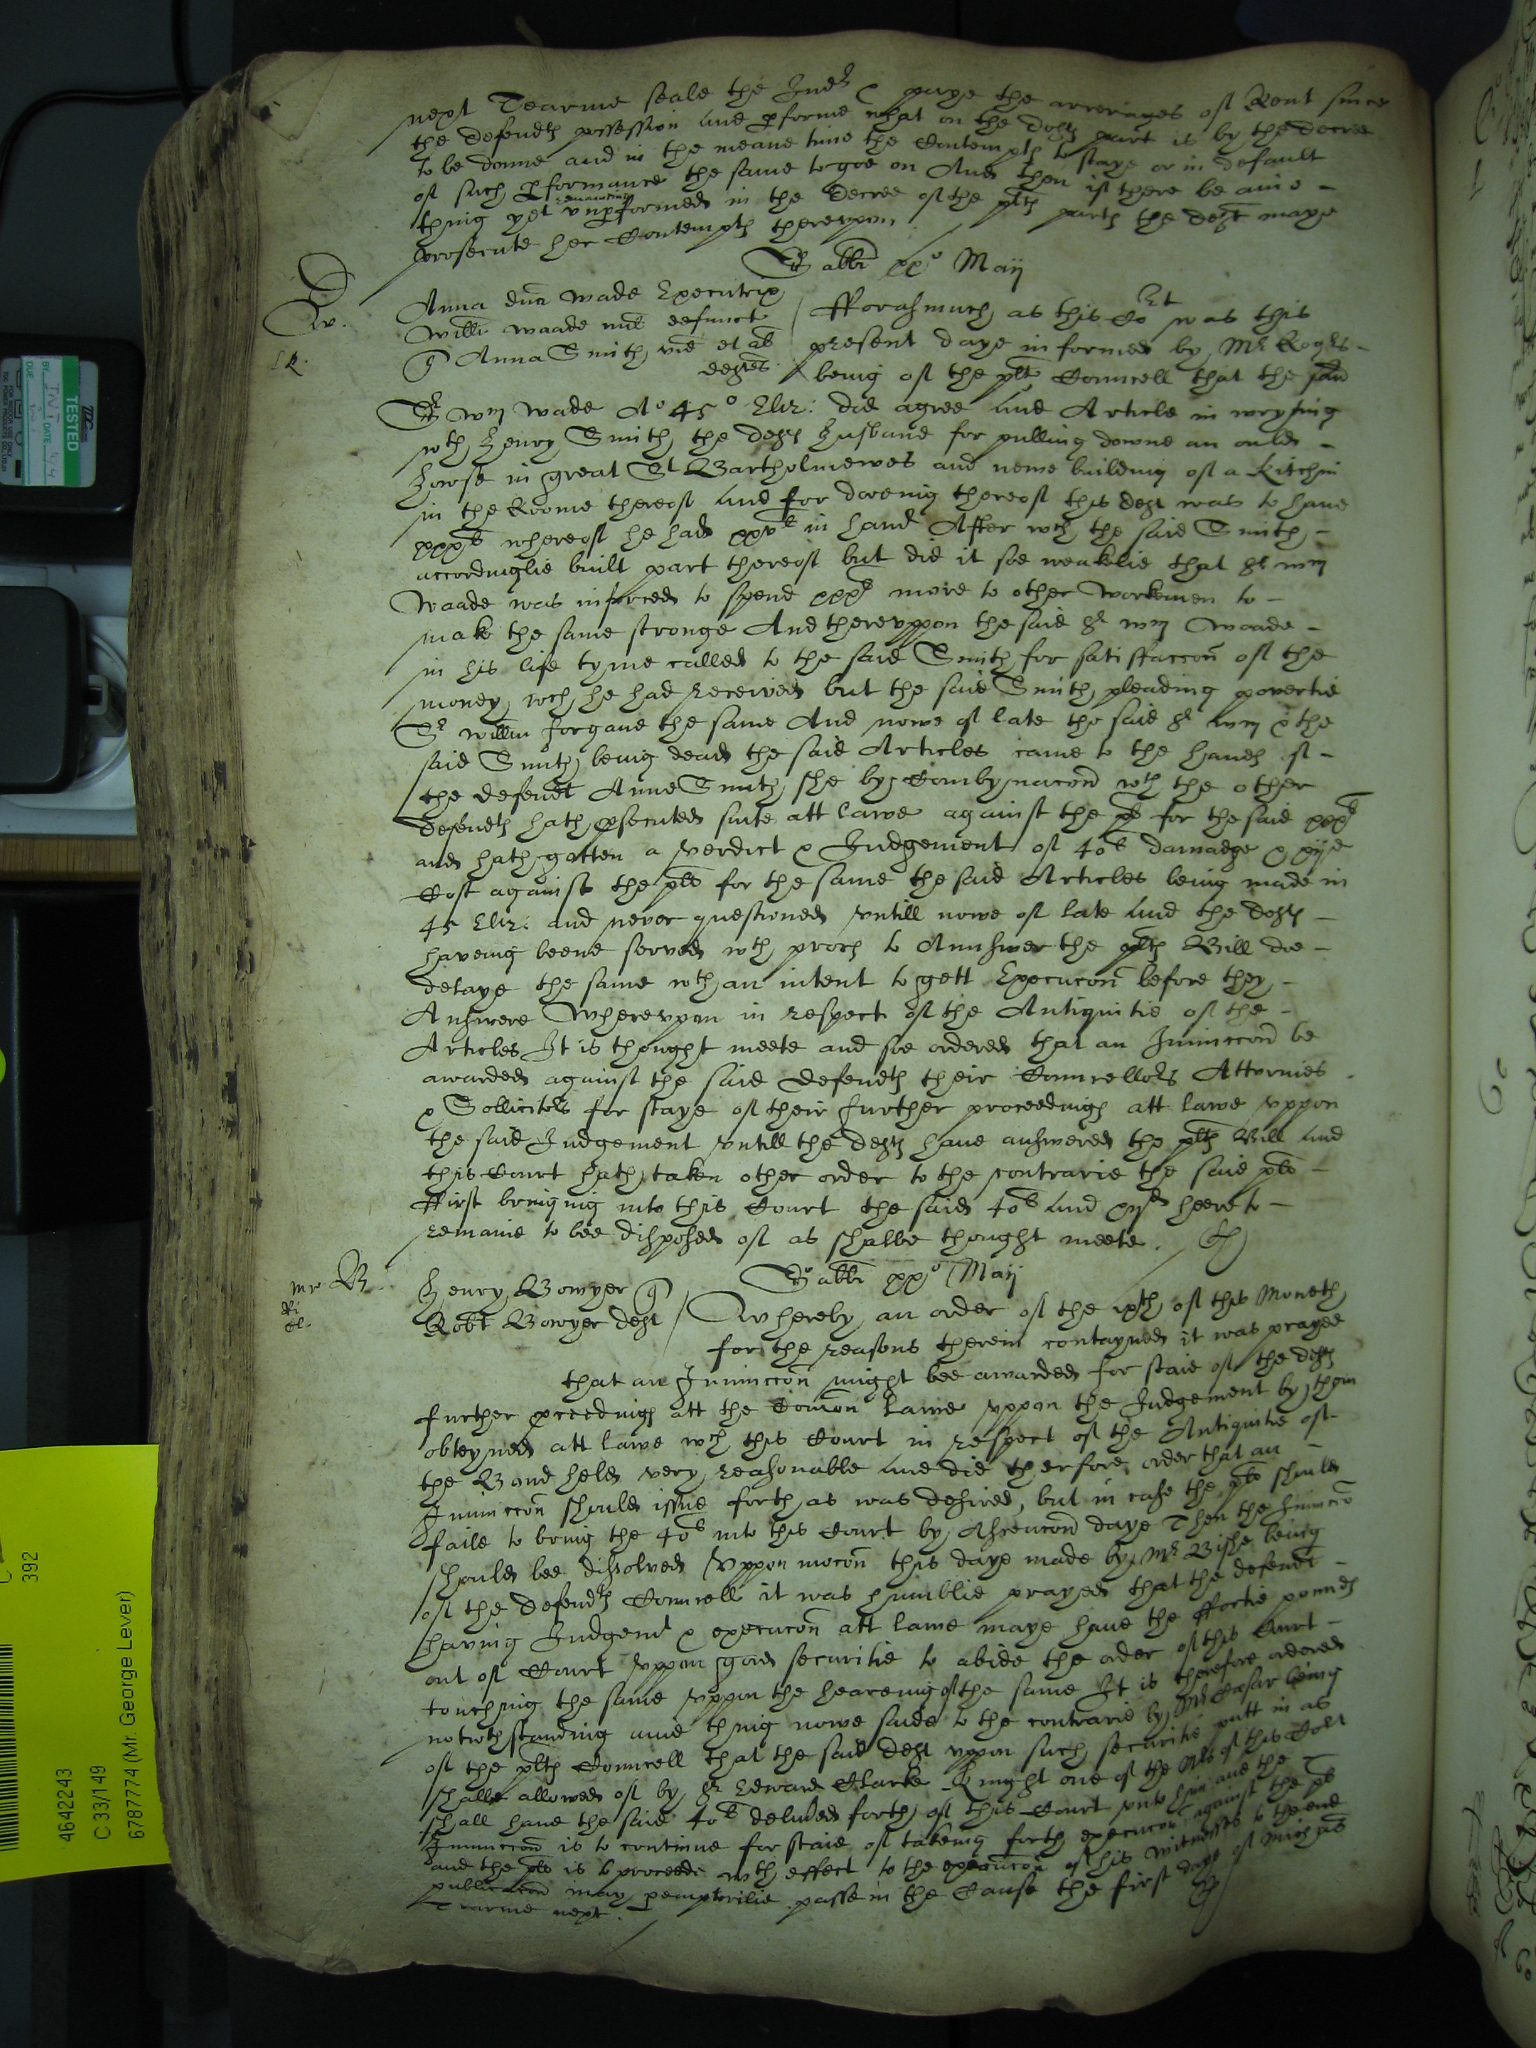 next Tearme seale the Indre & paye the arrerages of Rent since
the defendts possession and pforme what on the defts part is by the decree
to be donne and in the meane time the Contempts to staye or in default
of such pformance the same to goe on And then if there be anie
thing yet remaining vnpformed in the decree of the plts parte the deft maye
prosecute her Contempts therevpon.
Sabbi xxo Maij
Anna dna Wade Executrix
Willi Waade mil defunct
q Anna Smith vid et al
deftes
fforasmuch as this Cort was this
present daye informed by Mr
being of the plts Councell that the said
Sr Wm Wade Ao 45o Eliz: did agree and Article in wryting
wth Henry Smith the defts husband for pulling downe an ould
howse in great St Bartholmewes and newe building of a Kitchin
in the Roome thereof and for doeing thereof this deft was to have
xxxl whereof he had xxvl in hand After wch the said Smith
accordinglie built part thereof but did it soe weakelie that Sr Wm
Waade was inforced to spend xxxl more to other Workemen to
make the same stronge And therevppon the said Sr Wm Waade
in his life tyme called to the said Smith for satisfaccon of the
money wch he had received but the said Smith pleading povertie
Sr Willm forgaue the same And nowe of late the said Sr Wm & the
said Smith being dead the said Articles came to the hands of
the defendt Anne Smith she by Combynacon wth the other
defendts hath psecuted suite att lawe against the pl for the said xxxl
and hath gotten a verdict & Judgement of 40l damadge & xijd
Cost against the pls for the same the said Articles being made in
45 Eliz: and never questioned vntill nowe of late And the defts
haveing beene served wth proces to Aunswer the plts Bill did
delaye the same wth an intent to gett Execucon before they
Answere Wherevpon in respect of the Antiquitie of the
Articles It is thought meete and soe ordered that an Iniunccon be
awarded against the said Defendts their Councellors Attornies
& Sollicitors for staye of their further proceedings att lawe vppon
the said Judgement vntill the defts have answered the plts Bill and
this Court hath taken other order to the contrarie the said pls
ffirst bringing into this Court the said 40l and xijd heere to
remaine to bee disposed of as shalbe thought meete.
mr B.
Henry Bowyer q
Robt Bowyer deft
Sabbi xxo Maij
Whereby an order of the ixth of this Moneth
for the reasons therein contayned it was prayed
that an Iniunccon might bee awarded for staie of the defts
further pceedings att the Comon Lawe vppon the Judgement by them
obteyned att lawe wch this Court in respect of the Antiquitie of
the Bond held very reasonable and did therfore order that an
Iniunccon should issue forth as was desired, but in case the pls should
faile to bring the 40l into this Court by Ascencon daye Then the Iniunccon
should bee dissolved Vppon mocon this daye made by Mr Bishe being
of the defendts Councell it was humblie prayed that the defendt
having Judgemt & execucon att lawe maye have the ffortie pounds
out of Court vppon good securitie to abide the order of this Court
touching the same vppon the heareing of the same It is therefore ordered
notwthstanding anie thing nowe saide to the contrarie by Mr Cesar being
of the plts Councell that the said deft vppon such securitie putt in as
shalbe allowed of by Sr Edward Clarke Knight one of the Mrs of this Cort
shall have the said 40l delivered forth of this Court vnto him and the
Iniunccon is to continue for staie of takeing forth execucon against the pl
and the pls is to proceede wth effect to the execucon of his witnesses to the end
publicacon may pemptorilie passe in the Cause the first daye of Michas
Tearme next.
TESTED
4642243
C 33/149
6787774 (Mr. George Lever)
392